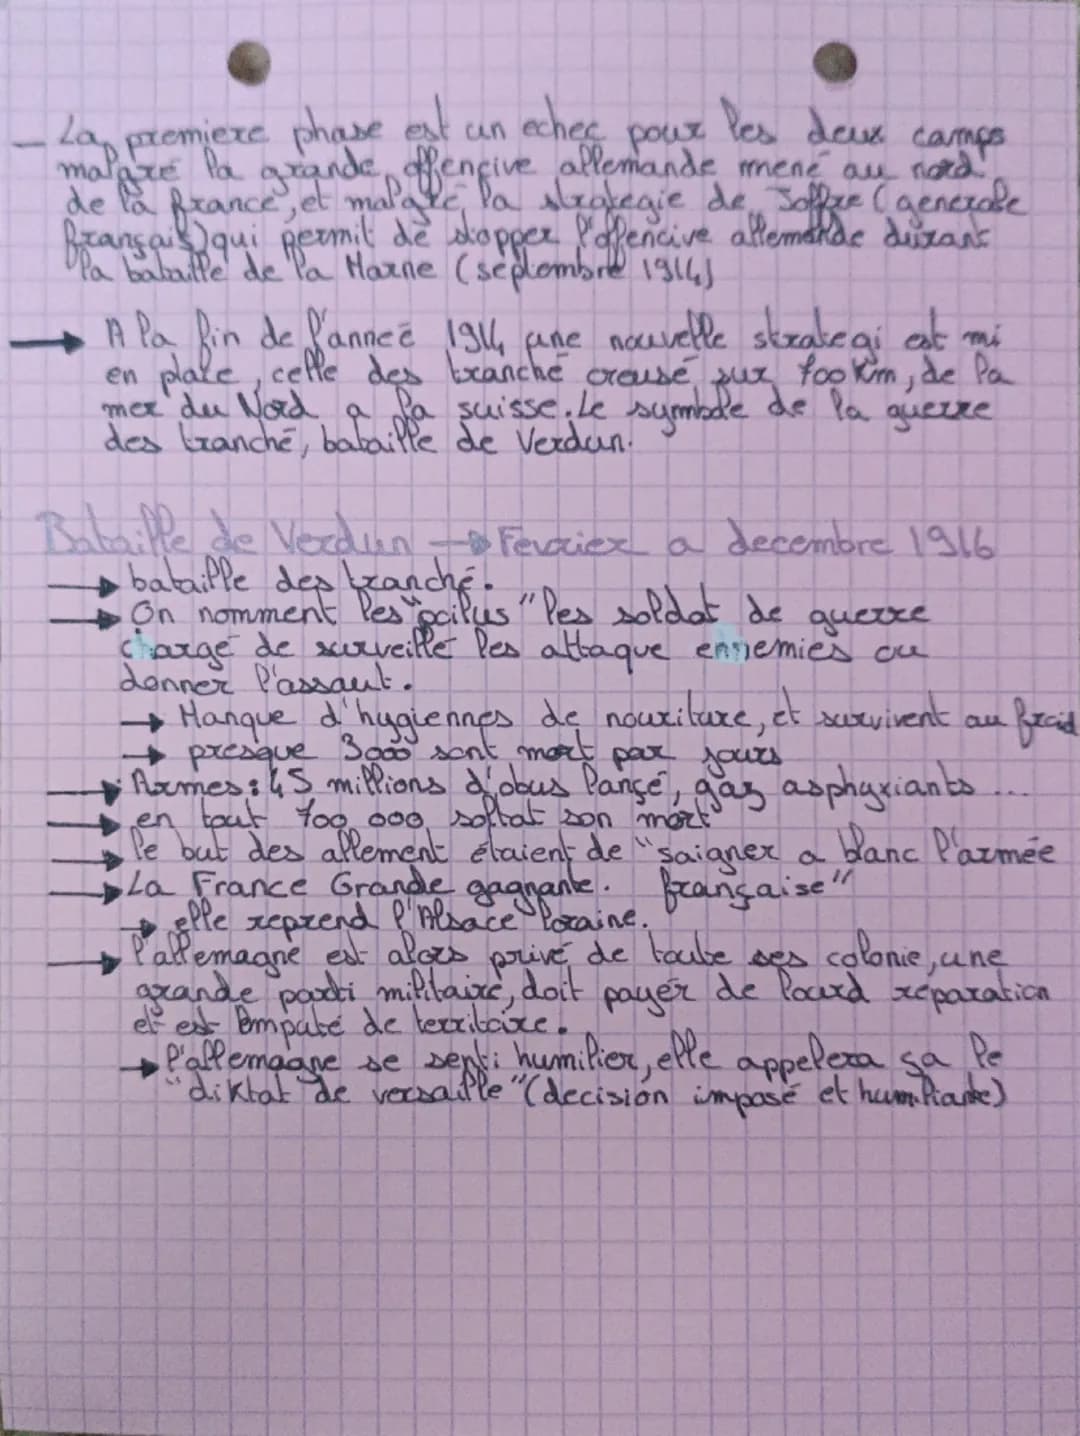 - La premiere phase est un echec pour les deux camps
malgré la grande offencive allemande mené au nord
de la france, et malgré la strategie de Joffre (generale
français) qui permit de stopper l'offencive allemande durans
la bataille de la Marne (septembre 1914)
→ A la fin de l'anneé 1914 une nouvelle strategi est mi
en place, celle des tranché creusé sur 700 km, de la
mer du Nord a la suisse. Le symbole de la guerre
des tranché, bataille de Verdun.
Bataille de Verdun → Fevrier a decembre 1916
→ bataille des tranché.
→ On nomment les "poilus" les soldat de guerre
chargé de surveillé les attaque ennemies ou
donner l'assaut.
→ Manque d'hygiennes de nouriture, et survivent au froid
→ presque 3000 sont mort par jours
→ Armes : 45 millions d'obus lançé, gaz asphyxiants ...
→ en tout 700 000 soltat son mort
→ le but des allement étaient de "saigner a blanc l'armée
française"
→ La France Grande gagnante.
→ elle reprend l'Alsace loraine.
→ l'allemagne est alors privé de toute ses colonie, une
grande parti militaire, doit payer de lourd reparation
et est amputé de territoire.
→ l'allemagne se senti humilier, elle appelera sa le
"diktat de versaille" (decision imposé et humiliante)